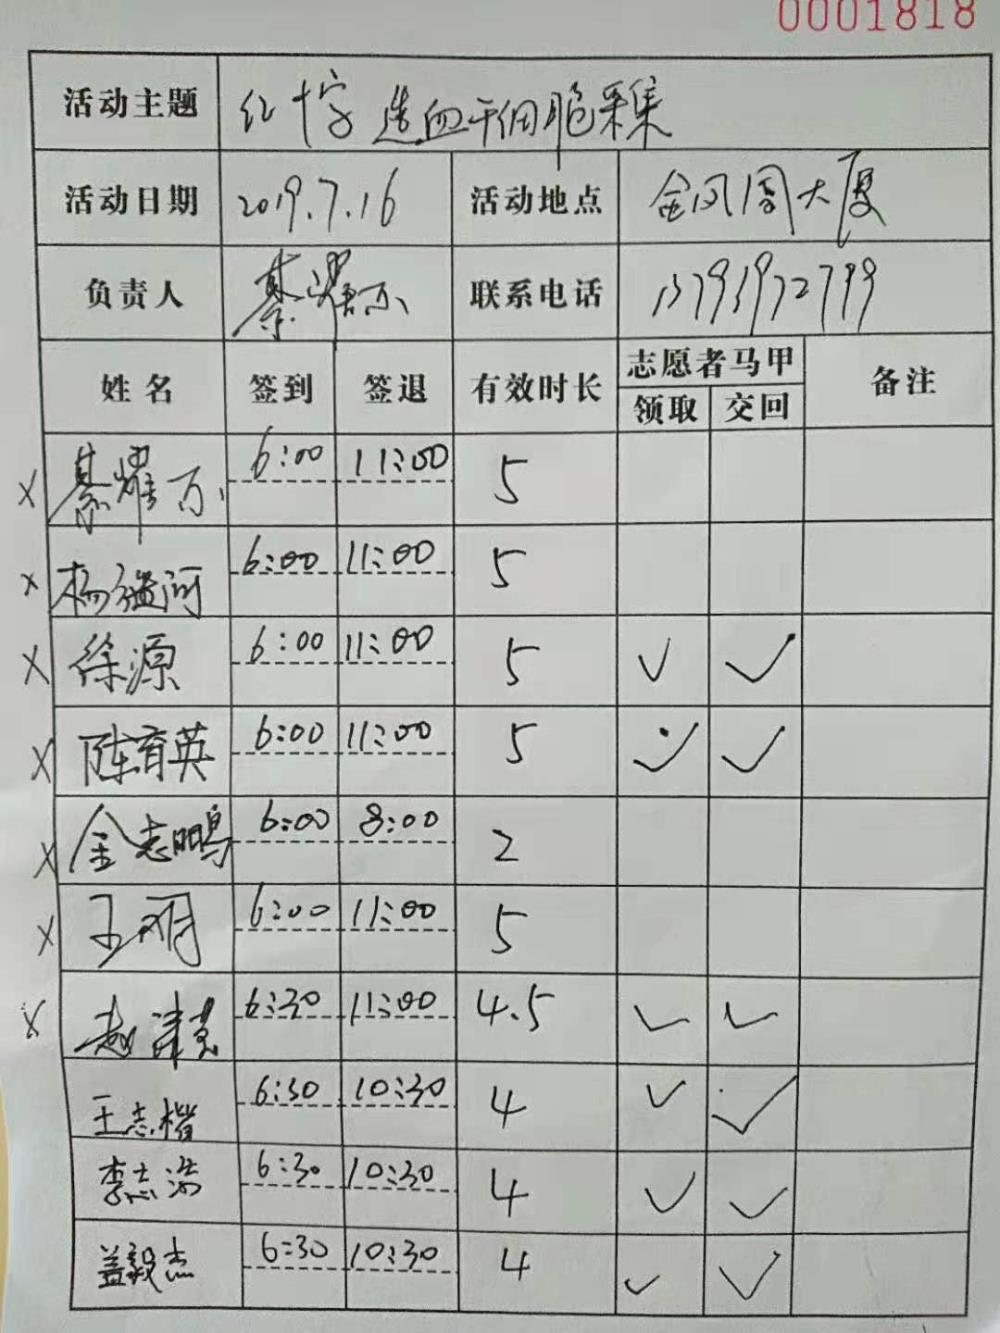 0001818
活动主题 红十字造血干细胞采集
活动日期 2019.7.16 活动地点 金凤周大厦
负责人 綦耀万 联系电话
姓名 签到 签退 有效时长 志愿者马甲 备注
领取 交回
x 綦耀万 6:00 11:00 5
x 杨 河 6:00 11:00 5
x 徐源 6:00 11:00 5 ✓ ✓
x 陈育英 6:00 11:00 5 ✓ ✓
x 金志鹏 6:00 8:00 2
x 王明 6:00 11:00 5
x 赵 6:30 11:00 4.5 ✓ ✓
王志楷 6:30 10:30 4 ✓ ✓
李志浩 6:30 10:30 4 ✓ ✓
盖毅杰 6:30 10:30 4 ✓ ✓